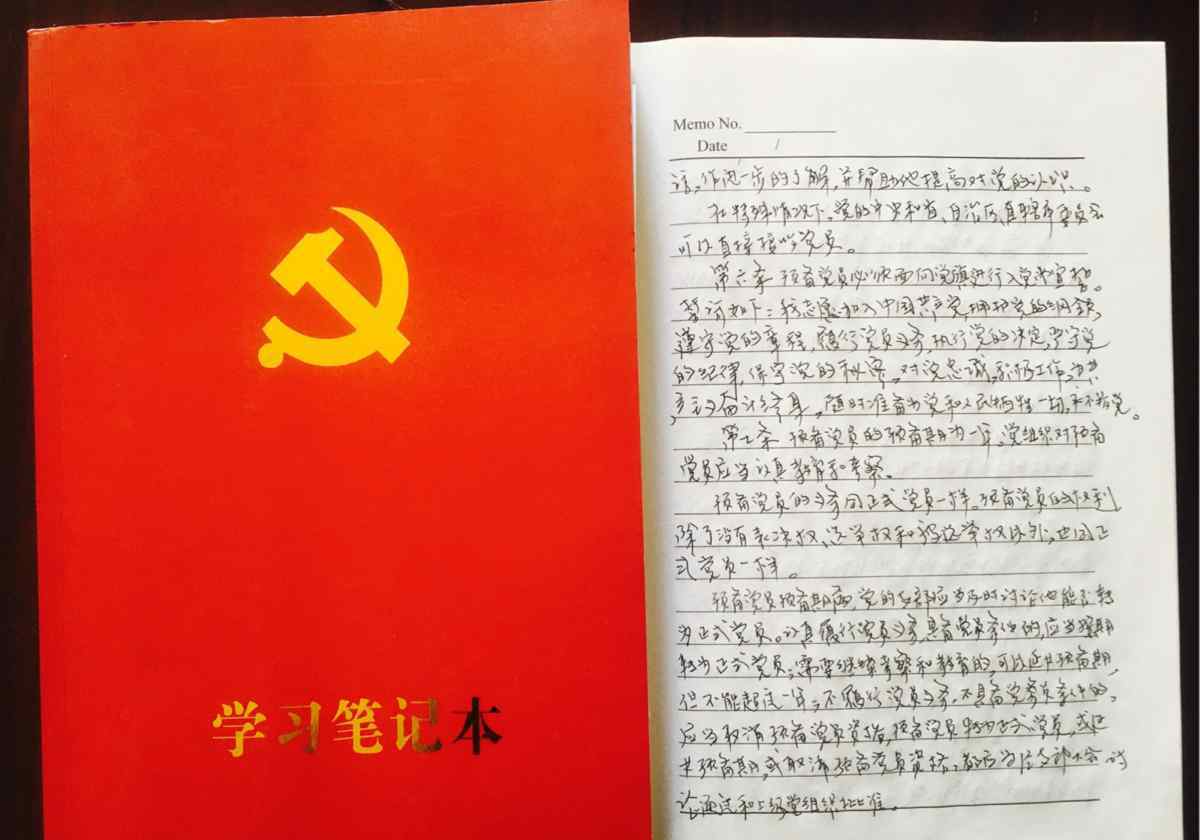 学习笔记本
Memo No.
Date /
话,作进一步的了解,并帮助他提高对党的认识。
在特殊情况下,党的中央和省、自治区、直辖市委员会
可以直接接收党员。
第六条 预备党员必须面向党旗进行入党宣誓。
誓词如下:我志愿加入中国共产党,拥护党的纲领,
遵守党的章程,履行党员义务,执行党的决定,严守党
的纪律,保守党的秘密,对党忠诚,积极工作,为共
产主义奋斗终身,随时准备为党和人民牺牲一切,永不叛党。
第七条 预备党员的预备期为一年,党组织对预备
党员应当认真教育和考察。
预备党员的义务同正式党员一样。预备党员的权利,
除了没有表决权、选举权和被选举权以外,也同正
式党员一样。
预备党员预备期满,党的支部应当及时讨论他能否转
为正式党员。认真履行党员义务,具备党员条件的,应当按期
转为正式党员;需要继续考察和教育的,可以延长预备期,
但不能超过一年;不履行党员义务,不具备党员条件的,
应当取消预备党员资格。预备党员转为正式党员,或延
长预备期,或取消预备党员资格,都应当经支部大会讨
论通过和上级党组织批准。